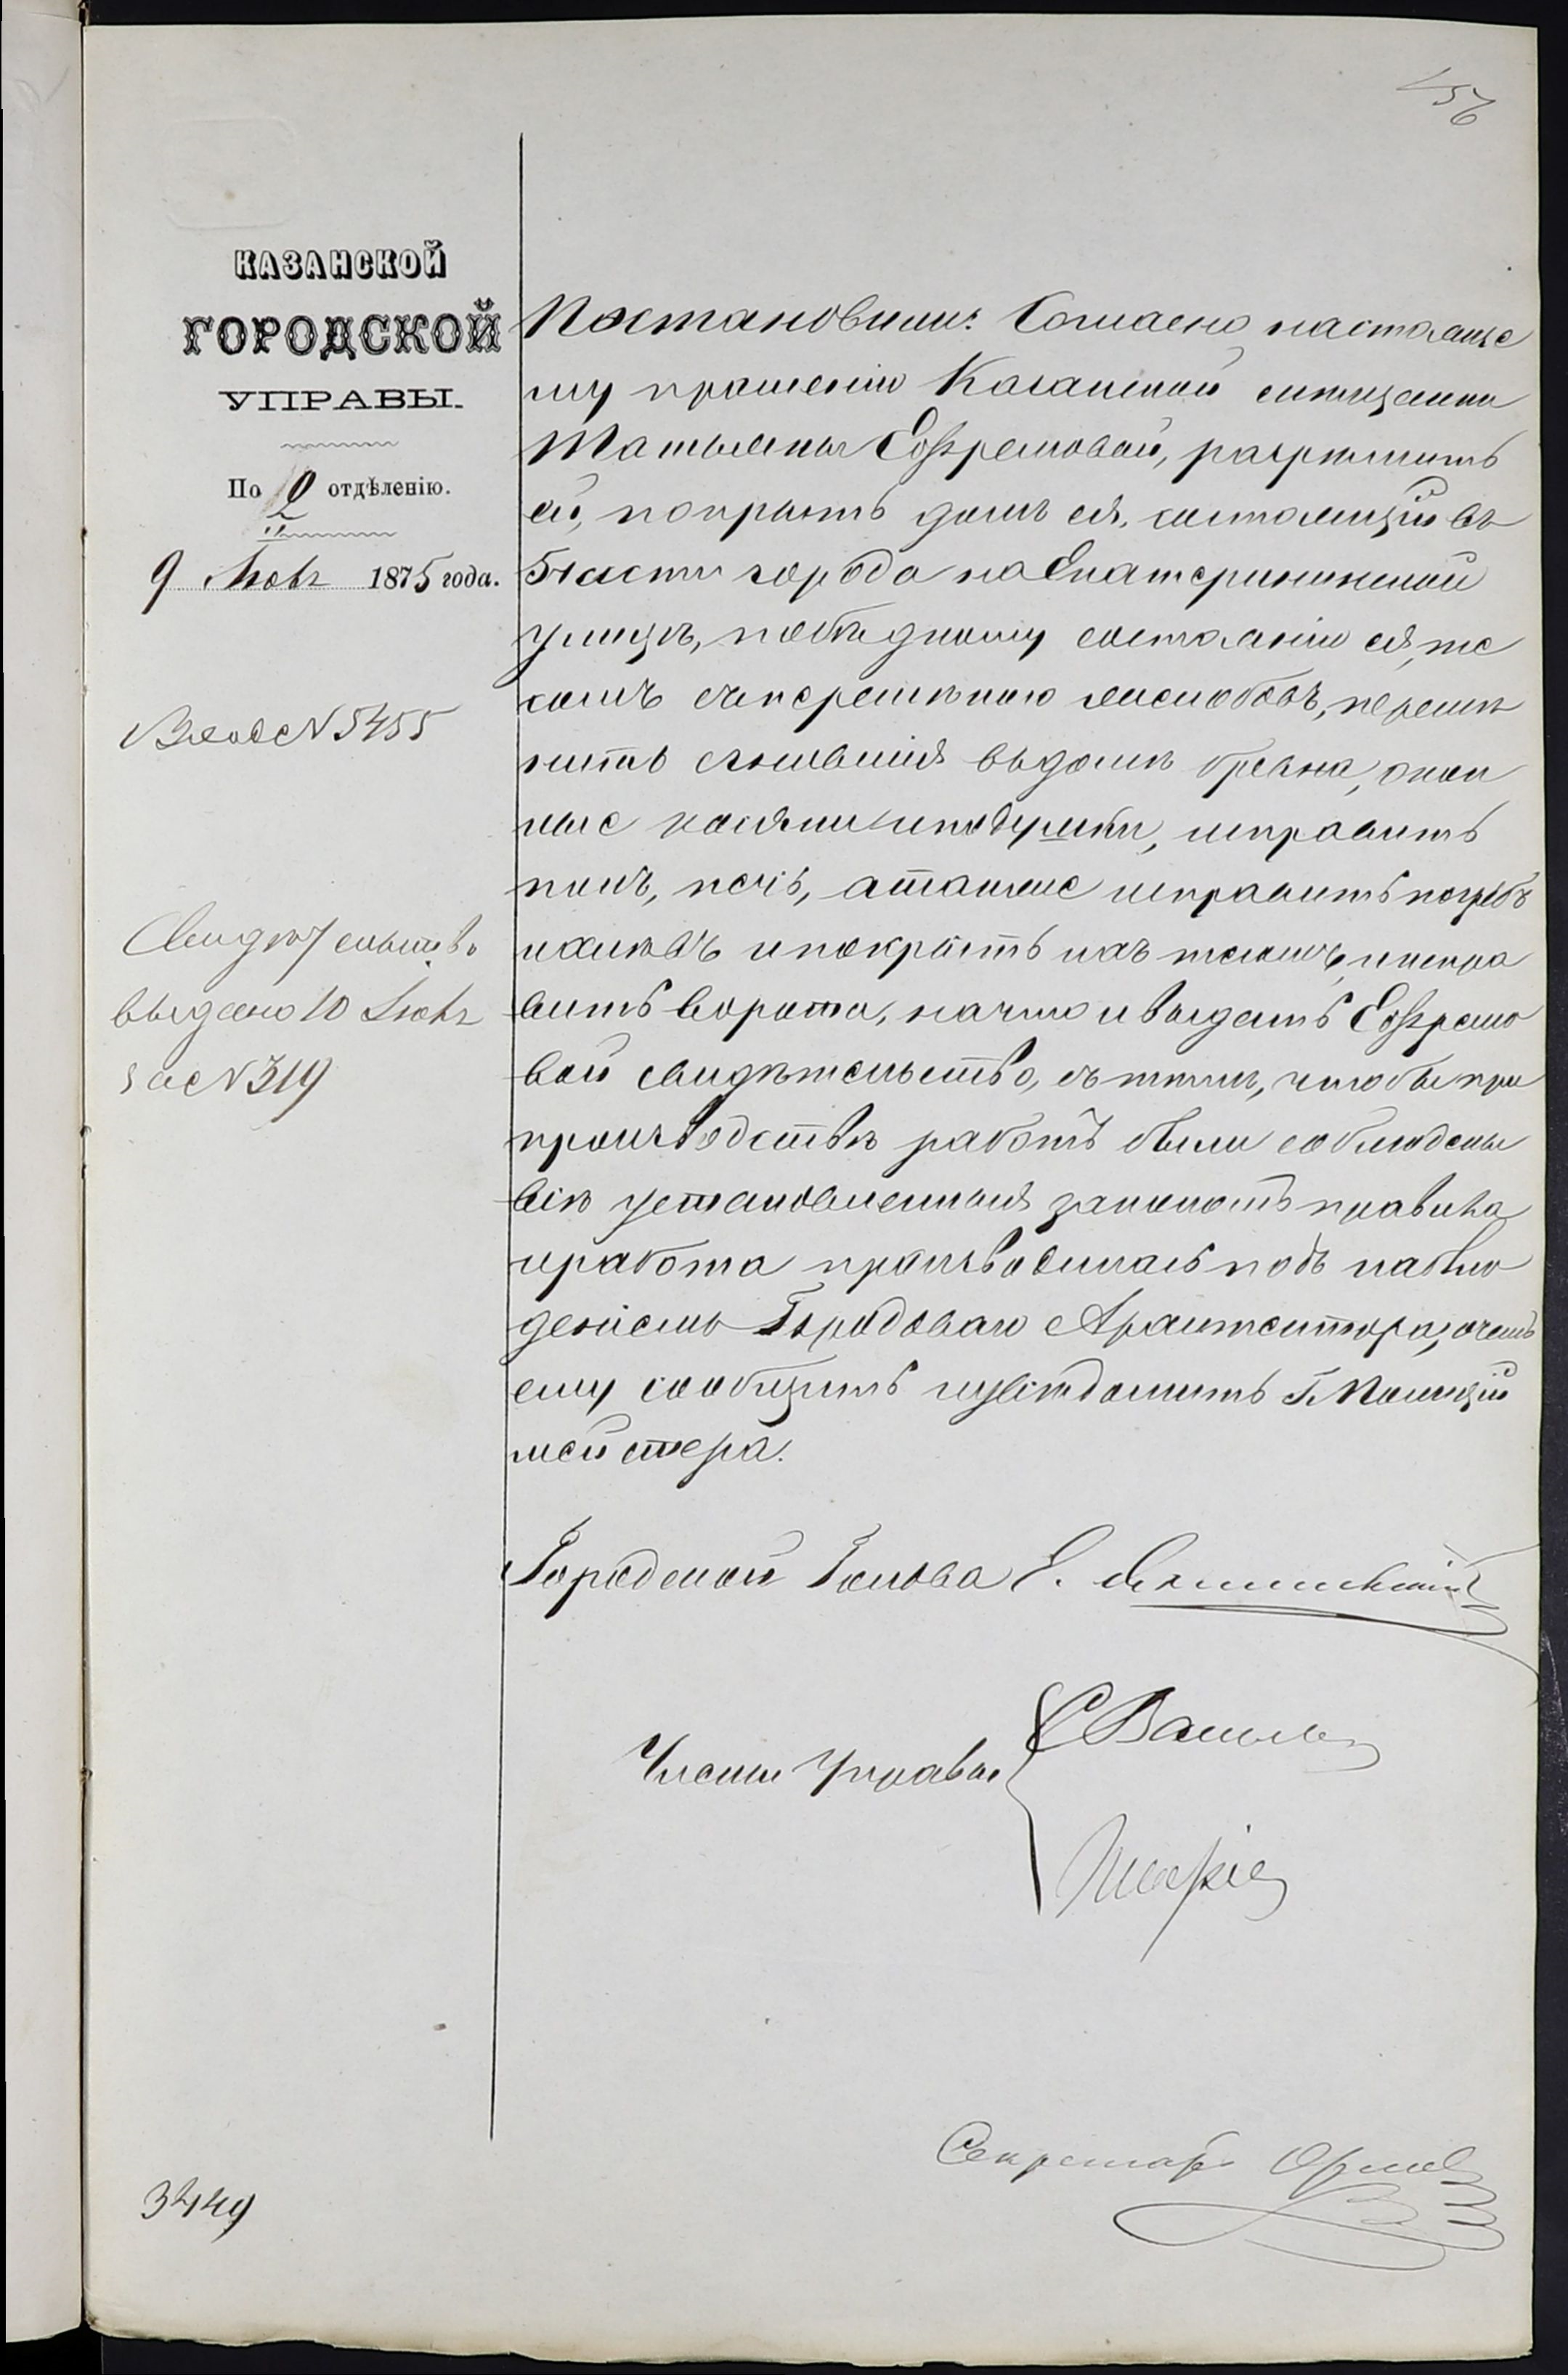 156
КАЗАНСКОЙ
ГОРОДСКОЙ
УПРАВЫ.
По 2 отдѣленію.
9 Іюля 1875 года.
Вход № 5455
Свидѣтельство
выдано 10 Іюля
за № 319
Постановили: Согласно настояще
му прошенію Казанской мѣщанки
Татьяны Ефремовой, разрѣшить
ей, покрыть домъ ея, состоящій въ
5 части города на Екатерининской
улицѣ, по бѣдному состоянію ея, те
сомъ съ перемѣною рѣшетовъ, перемѣ
нить сгнившія въ домѣ бревна, окон
ные косяки и подушки, исправить
полъ, печь, а также исправить погребъ
и хлѣвъ и покрыть ихъ тесомъ, испра
вить ворота, на что и выдать Ефремо
вой свидѣтельство, съ тѣмъ, чтобы при
производствѣ работъ были соблюдены
всѣ установленныя закономъ правила
и работа производилась подъ наблю
деніемъ Городоваго Архитектора, о чемъ
ему сообщить и увѣдомить Г. Полицій
мейстера.
Городской Голова Е.
Члены Управы
Секретарь Орлов
3449